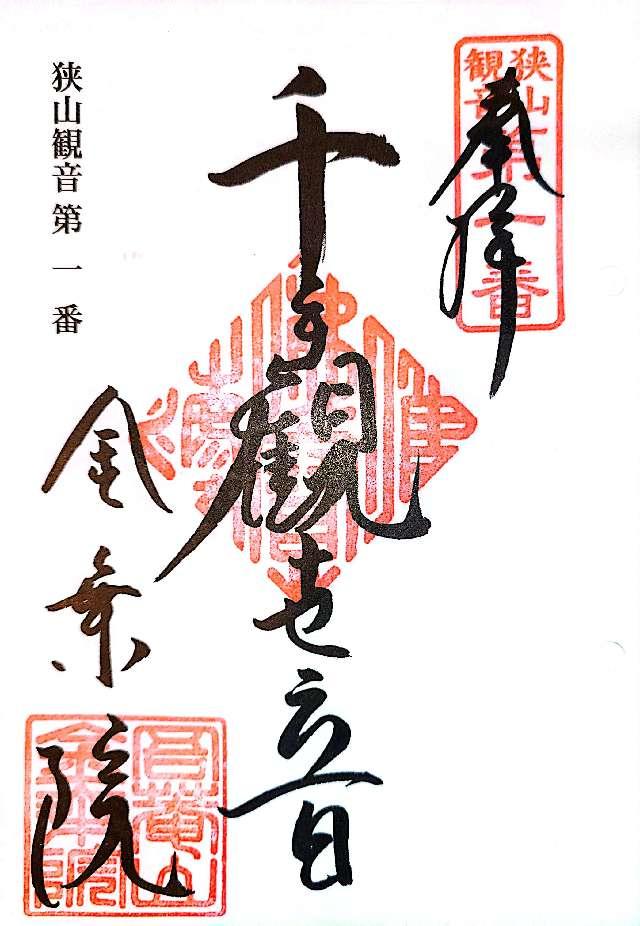 奉拝
狭山
観音
第一番
千手観世音
狭山観音第一番
金乗院